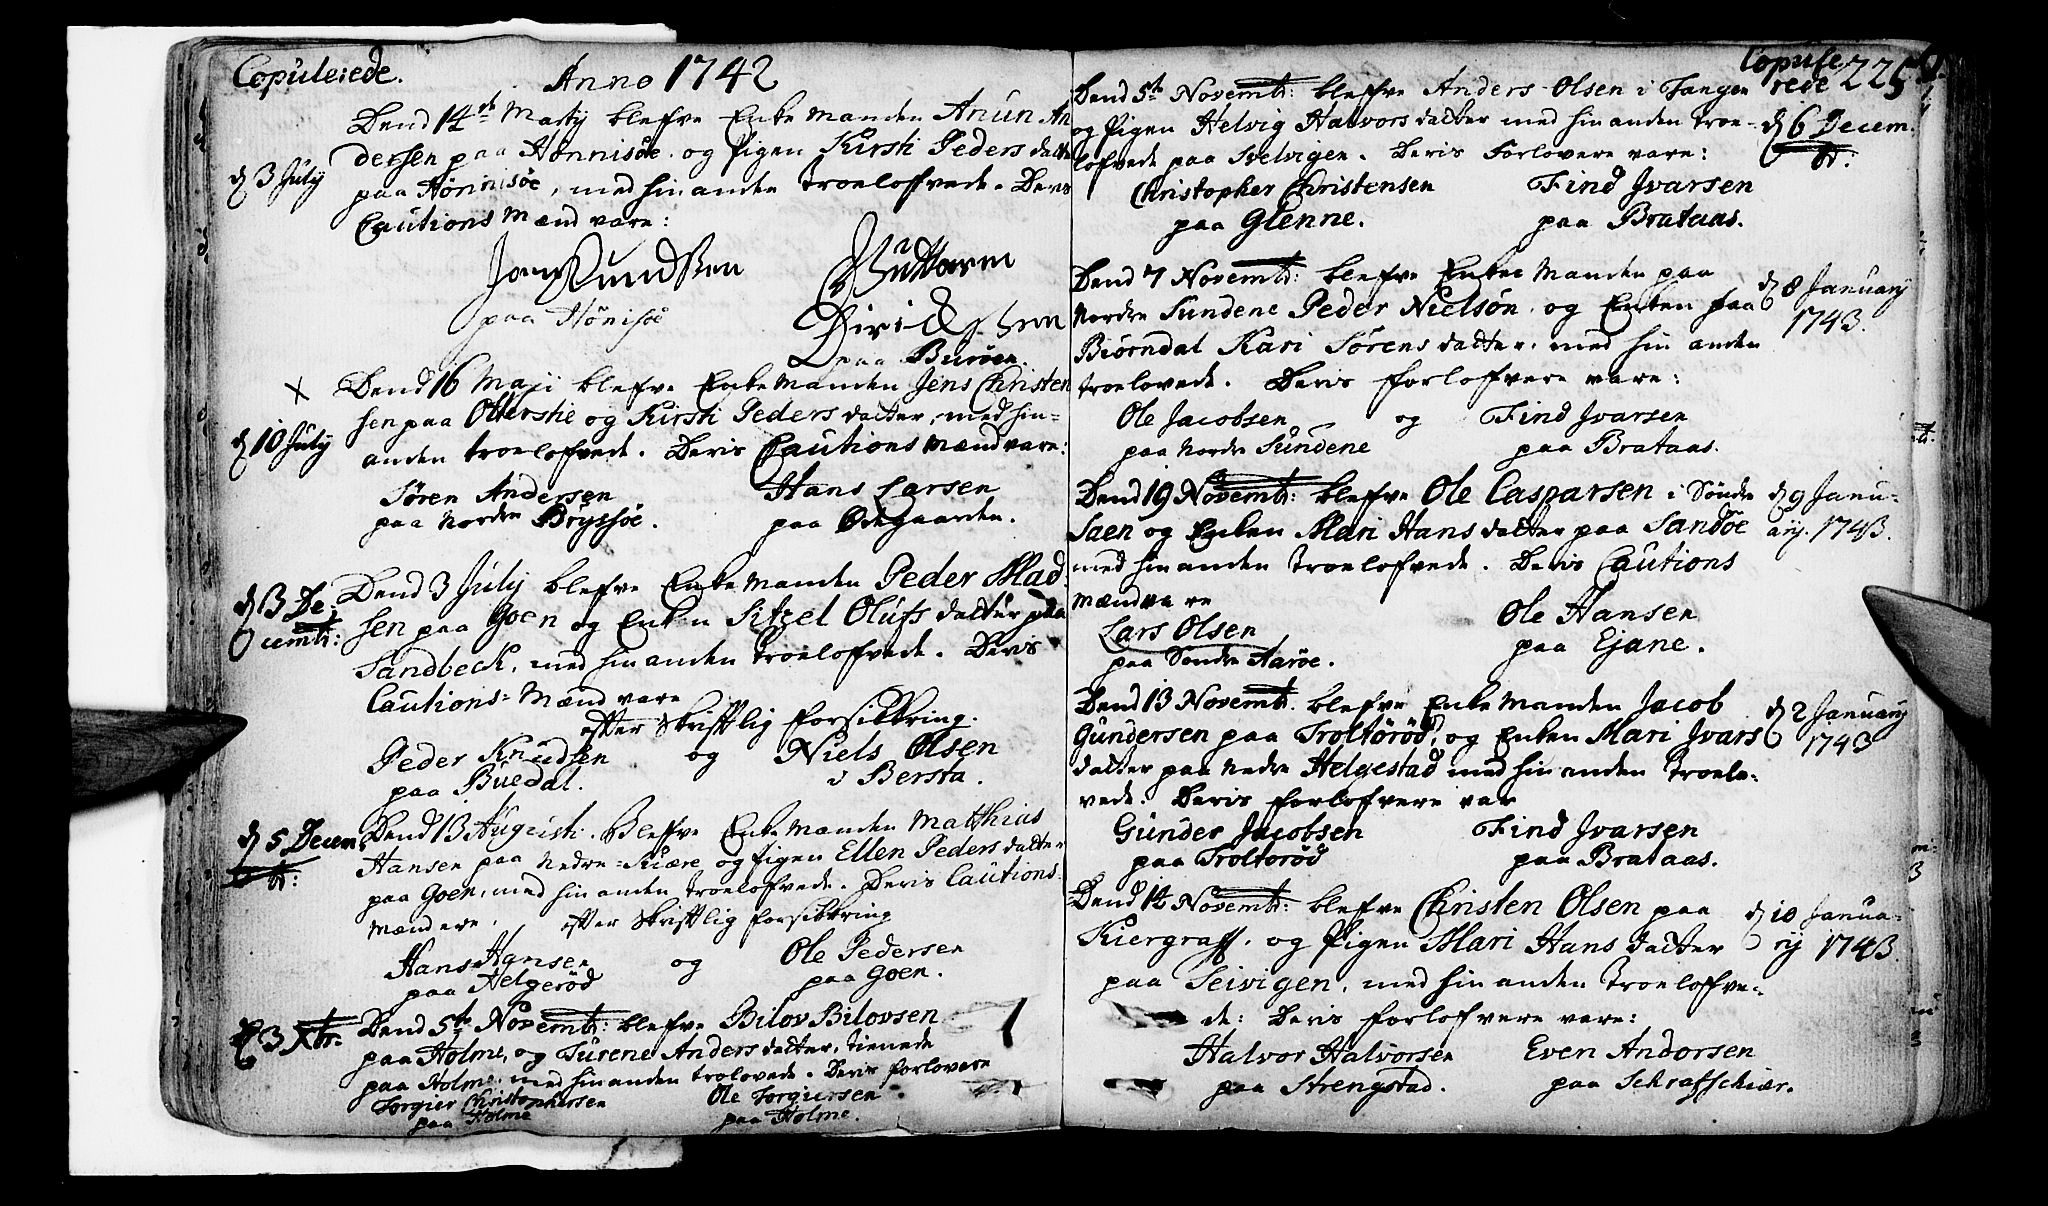 Copulerede. Anno 1742
Dend 14de Martij blefve Enkemanden Anun An
dersen paa Hønnisøe og Pigen Kirsti Peders datter
d 3 July
paa Hønnisøe, med hinanden troelofvede. Deris
Cautions Mænd vare:
Jon Knudssen
paa Hønisøe
Guttorm
Dirichsen
paa Buröen.
Dend 16 Maji blefve Enkemanden Jens Christen
sen paa Olterstie og Kirsti Peders datter, med hin-
d 10 July
anden troelofvede. Deris Cautions Mænd vare:
Søren Andersen Hans Larsen
paa Nordre Brÿssøe. paa Ødegaarden.
d 3 De
cembr:
Dend 3 July blefve Enkemanden Peder Mad
sen paa Goen og Enken Sitzel Olufs datter paa
Sandbeck, med hinanden troelofvede. Deris
Cautions-Mænd vare
efter skrifftlig forsikkring.
Peder Knudsen og Niels Olsen
paa Buedal. i Bersta.
d 5 Decem
br:
Dend 13 Augusti. Bleffve Enkemanden Matthias
Hansen paa Nedre-Kiære og Pigen Ellen Peders datter
paa Goen, med hinanden troelofvede. Deris Cautions
Mænd ere, efter skrifftlig forsikkring
Hans Hansen og Ole Pedersen
paa Helgerød paa Goen.
d 3 Xbr.
Dend 5te Novembr: blefve Bilov Bilovsen
paa Holme, og Turene Anders datter, tienede
paa Holme, med hinanden trolovede. Deris forlovere
Torgier Christophersen Ole Torgiersen
paa Holme paa Holme.
Copule
rede 225
Dend 5te Novembr: bleffve Anders Olsen i Tangen
og Pigen Helvig Halvors datter med hinanden troe-
lofvede paa Svelvigen. Deris Forlovere vare:
d 6 Decem
br:
Christopher Christensen Find Ivarsen
paa Glenne. paa Brataas.
Dend 7 Novembr: blefve Enkemanden paa
Nordre Sundene Peder Nielsøn, og Enken paa
Biørndal Kari Sørens datter, med hin anden
troelovede. Deris forlofvere vare:
d 8 January
1743.
Ole Jacobsen og Find Ivarsen
paa Nordre Sündene paa Brataas.
Dend 19 Novembr: blefve Ole Casparsen i Søndre
Saen og Enken Mari Hans datter paa Sandøe
med hinanden troelofvede. Deris Cautions
Mænd vare
d 9 Janu-
arij. 1743.
Lars Olsen Ole Hansen
paa Søndre Aarøe. paa Ejane.
Dend 13 Novembr. blefve Enkemanden Jacob
Gundersen paa Troltørød, og Enken Mari Ivars
datter paa Nedre Helgestad med hinanden troelo-
vede. Deris forlofvere var
d 2 January
1743
Gunder Jacobsen Find Ivarsen
paa Troltorød paa Brataas.
Dend 14 Novembr: blefve Christen Olsen paa
Kiergraff, og Pigen Mari Hans datter
paa Seivigen, med hinanden troeloffve-
de: Deris forlofvere vare:
d 10 Janua-
rij 1743.
Halvor Halvorsen Even Andersen
paa Strengstad. paa Schrafschiær.